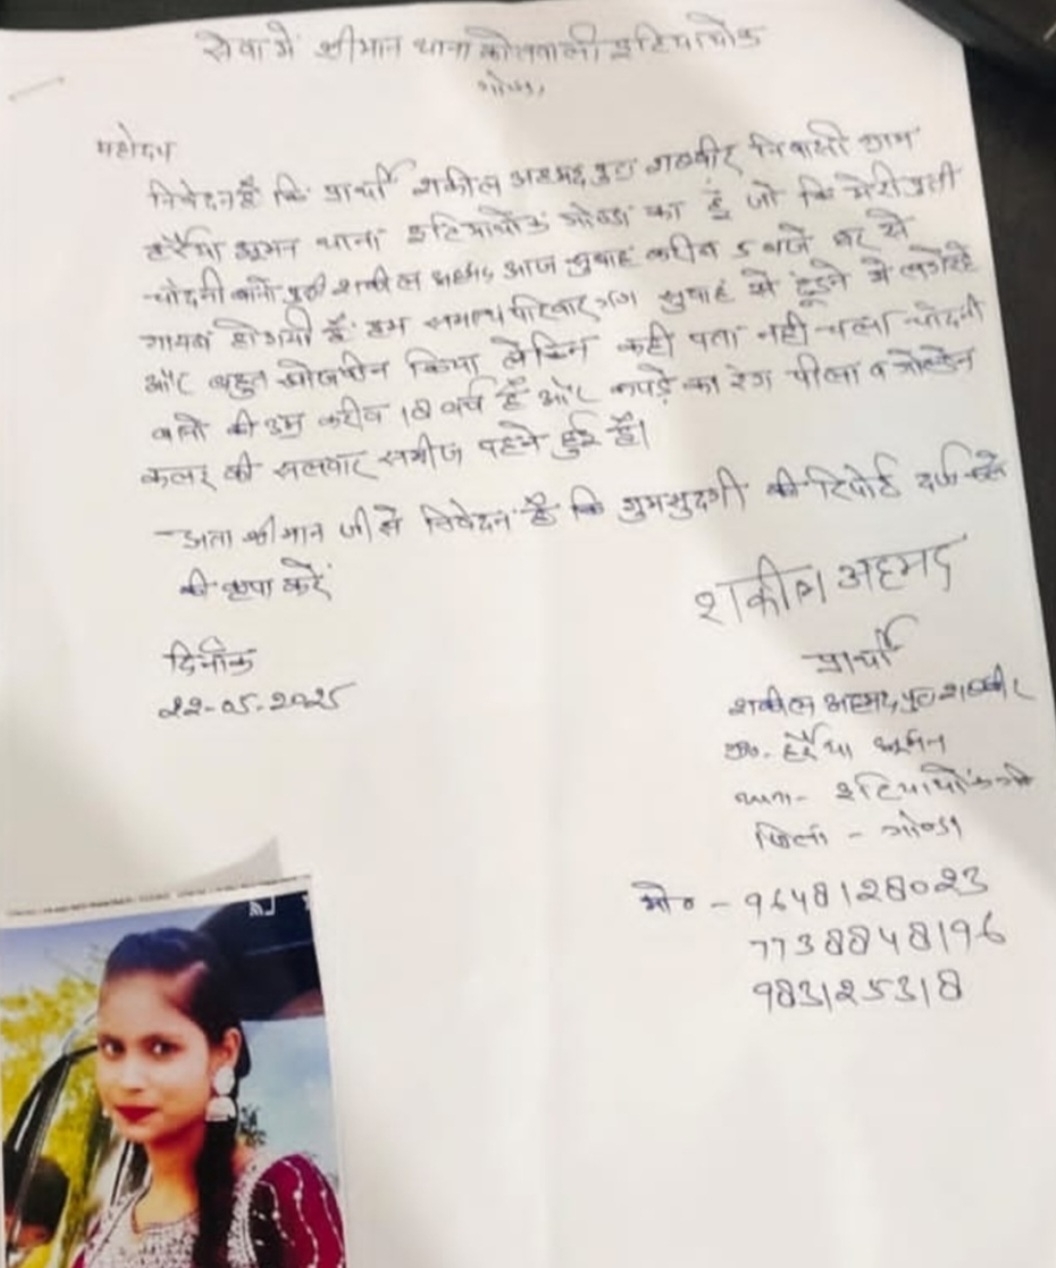 सेवा में श्रीमान थाना कोतवाली इटियाथोक
गोण्डा,
महोदय
निवेदन है कि प्रार्थी शकील अहमद पुत्र शब्बीर निवासी ग्राम
हरैया झूमन थाना इटियाथोक गोण्डा का हूं जो कि मेरी पुत्री
चांदनी बानो पुत्री शकील अहमद आज सुबाह करीब 5 बजे घर से
गायब हो गयी है हम समस्त परिवार गण सुबाह से ढूंढने मे लगे रहे
और बहुत खोजबीन किया लेकिन कही पता नही चला चांदनी
बानो की उम्र करीब 18 वर्ष है और कपड़े का रंग पीला व गोल्डेन
कलर की सलवार समीज पहने हुई है।
अता श्रीमान जी से निवेदन है कि गुमसुदगी की रिपोर्ट दर्ज करने
की कृपा करें
शकील अहमद
प्रार्थी
दिनाँक
22-05-2025
शकील अहमद पुत्र शब्बीर
ग्रा०- हरैया झूमन
थाना- इटियाथोक
जिला - गोण्डा
मो० - 9648128023
7738848196
983125318